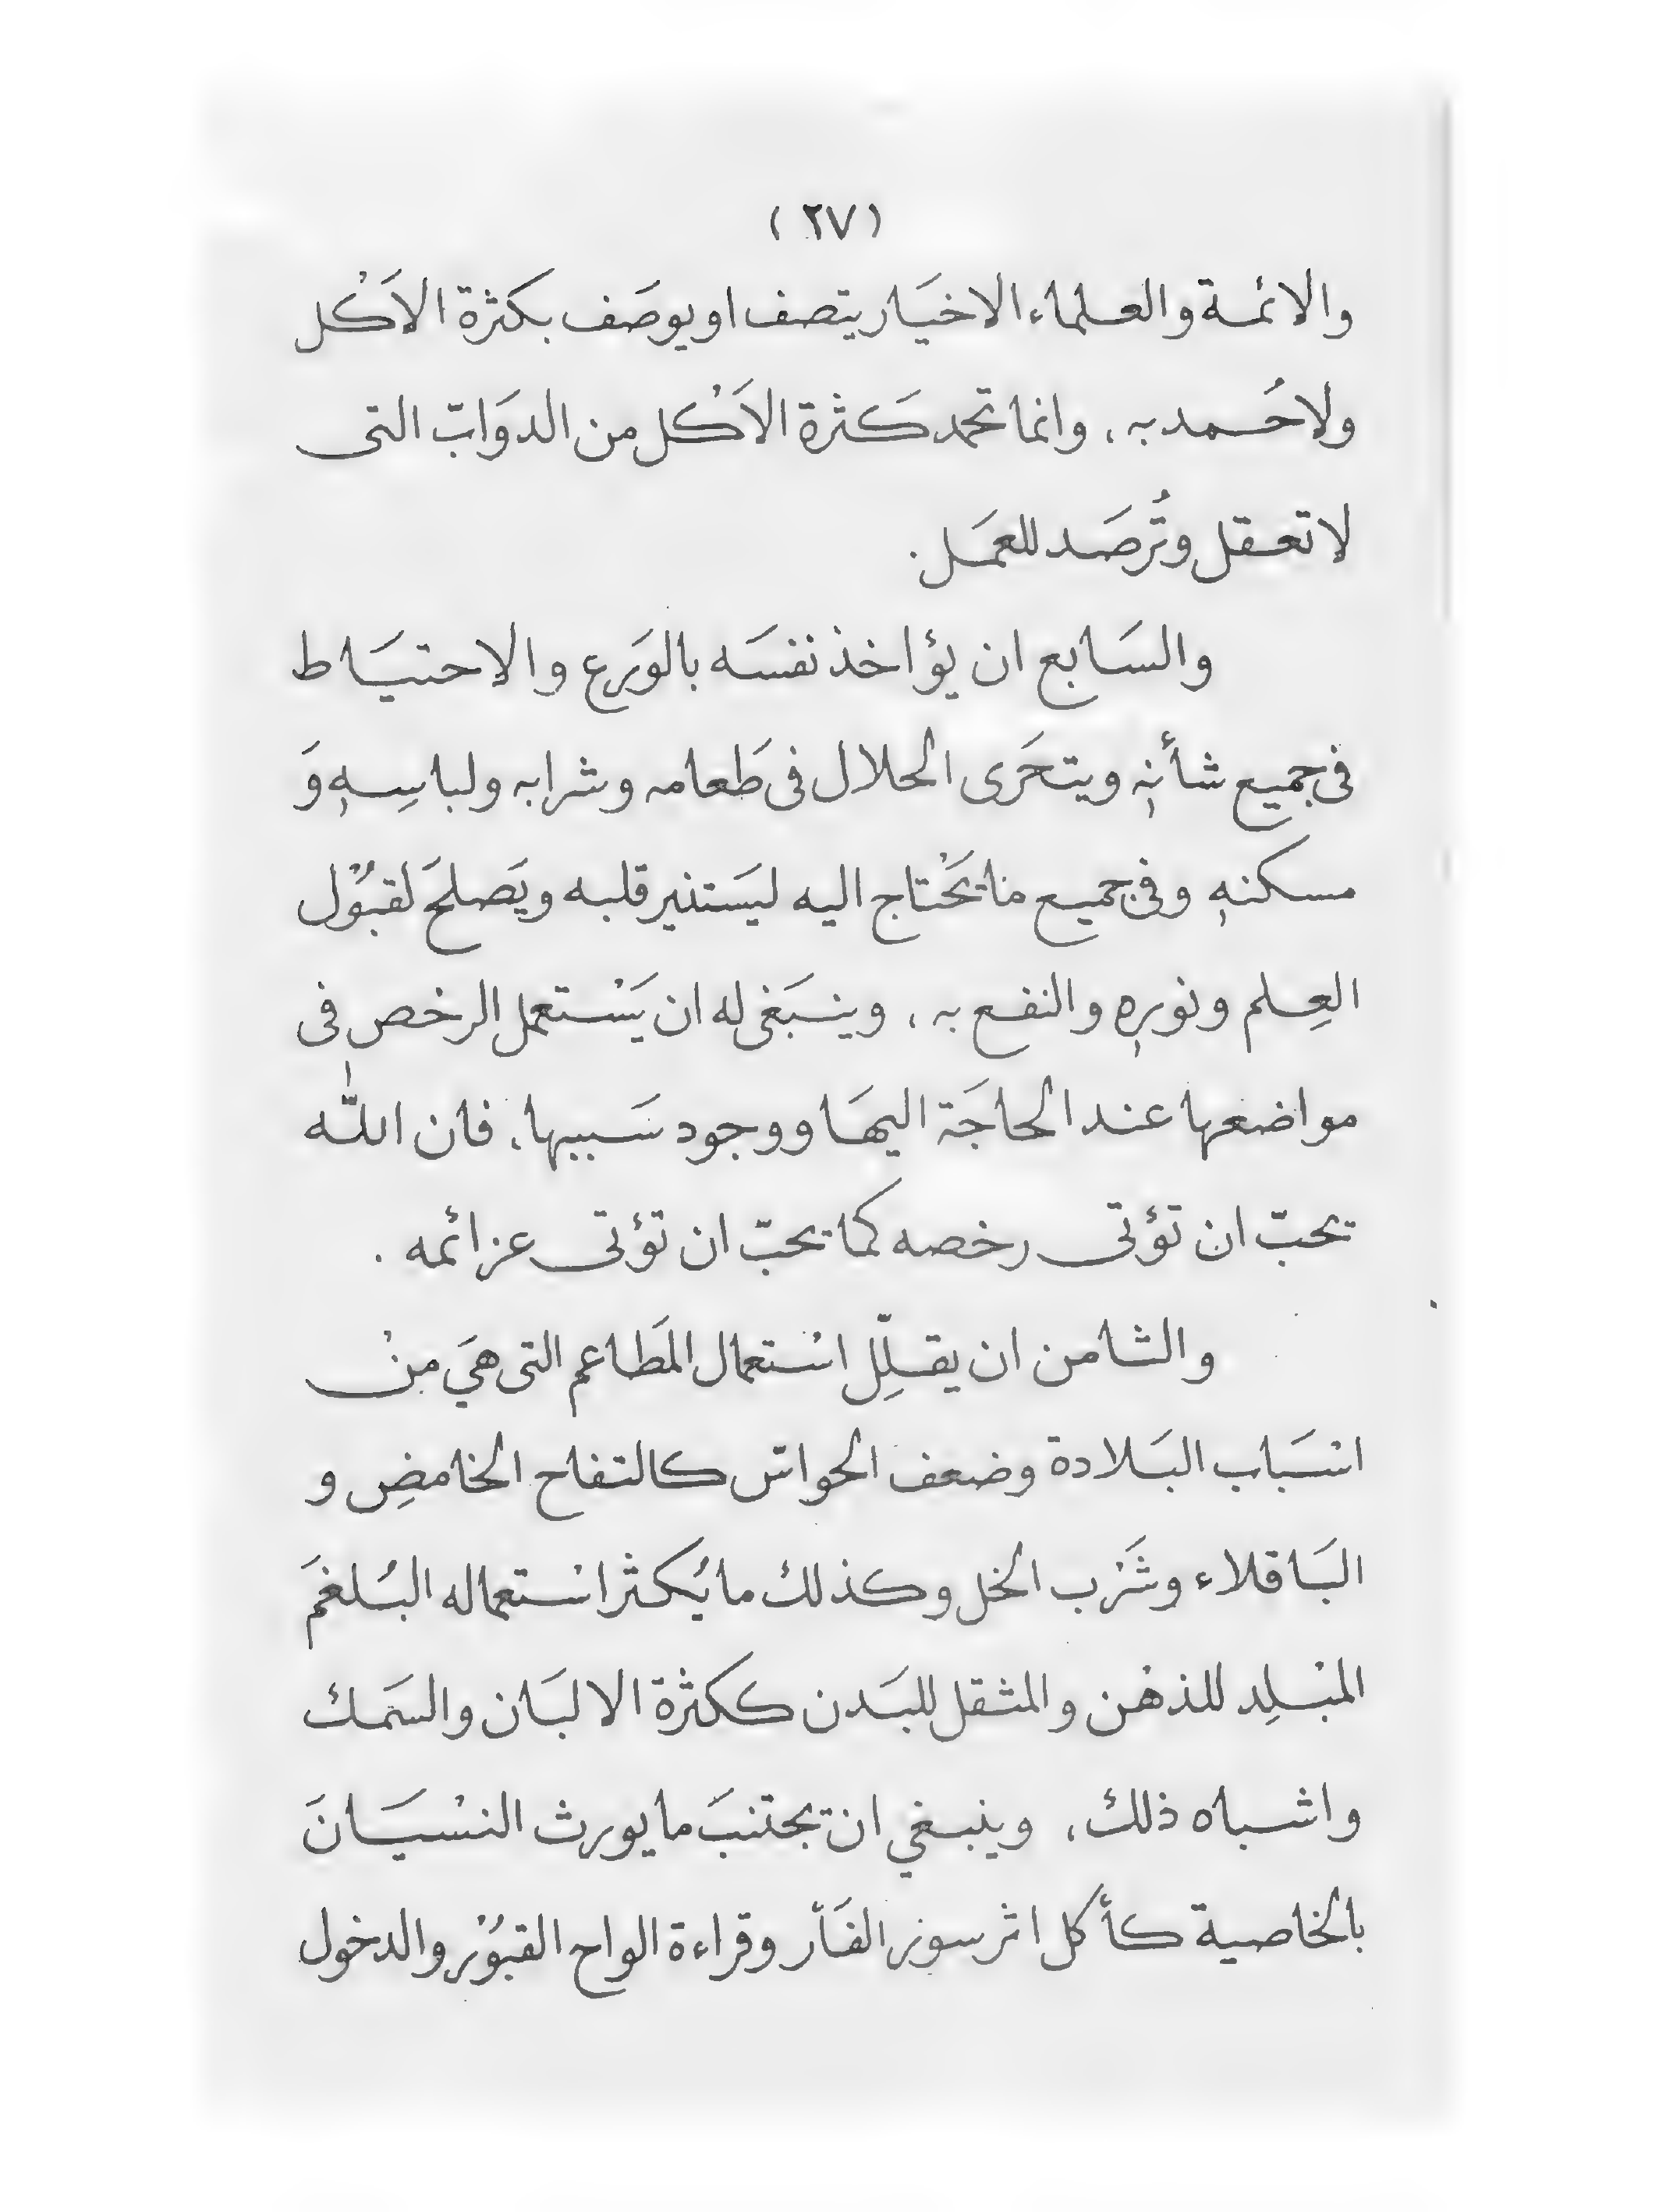 (٢٧)
والائمة والعلماء الاخيَار يتصف او يوصَف بكثرة الاَكْل
ولا حُمد به ، وانما تحمد كَثرة الاَكْل من الدوَابّ التى
لا تعقل وتُرصَد للعمَل .
والسَابع ان يؤاخذ نفسَه بالوَرع والاحتيَاط
فى جميع شأنهٖ ويتحَرى الحلال فى طَعامه وشرابه ولباسِهٖ وَ
مسكنهٖ وفى جميع ما يَحْتاج اليه ليَستنير قلبه ويَصلحَ لقبُوْل
العِلم ونورهٖ والنفع به ، وينبَغى له ان يَسْتعمل الرخص فى
مواضعها عند الحاجَة اليهَا ووجود سَببها ، فان اللّٰه
يحبّ ان تؤتى رخصه كما يحبّ ان تؤتى عزائمه .
والثامن ان يقلِّل اسْتعمال المَطاعم التى هيَ منْ
اسْبَاب البَلادة وضعف الحواسّ كالتفاح الحامضِ و
البَاقلاء وشَرْب الخل وكذلك ما يُكثر اسْتعماله البُلغمَ
المبْلِد للذهْن والمثقل للبَدن ككثرة الالبَان والسَمك
واشباه ذلك ، وينبغي ان يجتنبَ ما يورث النسْيَانَ
بالخاصية كأكل اثر سور الفَأر وقراءة الواح القبُوْر والدخول